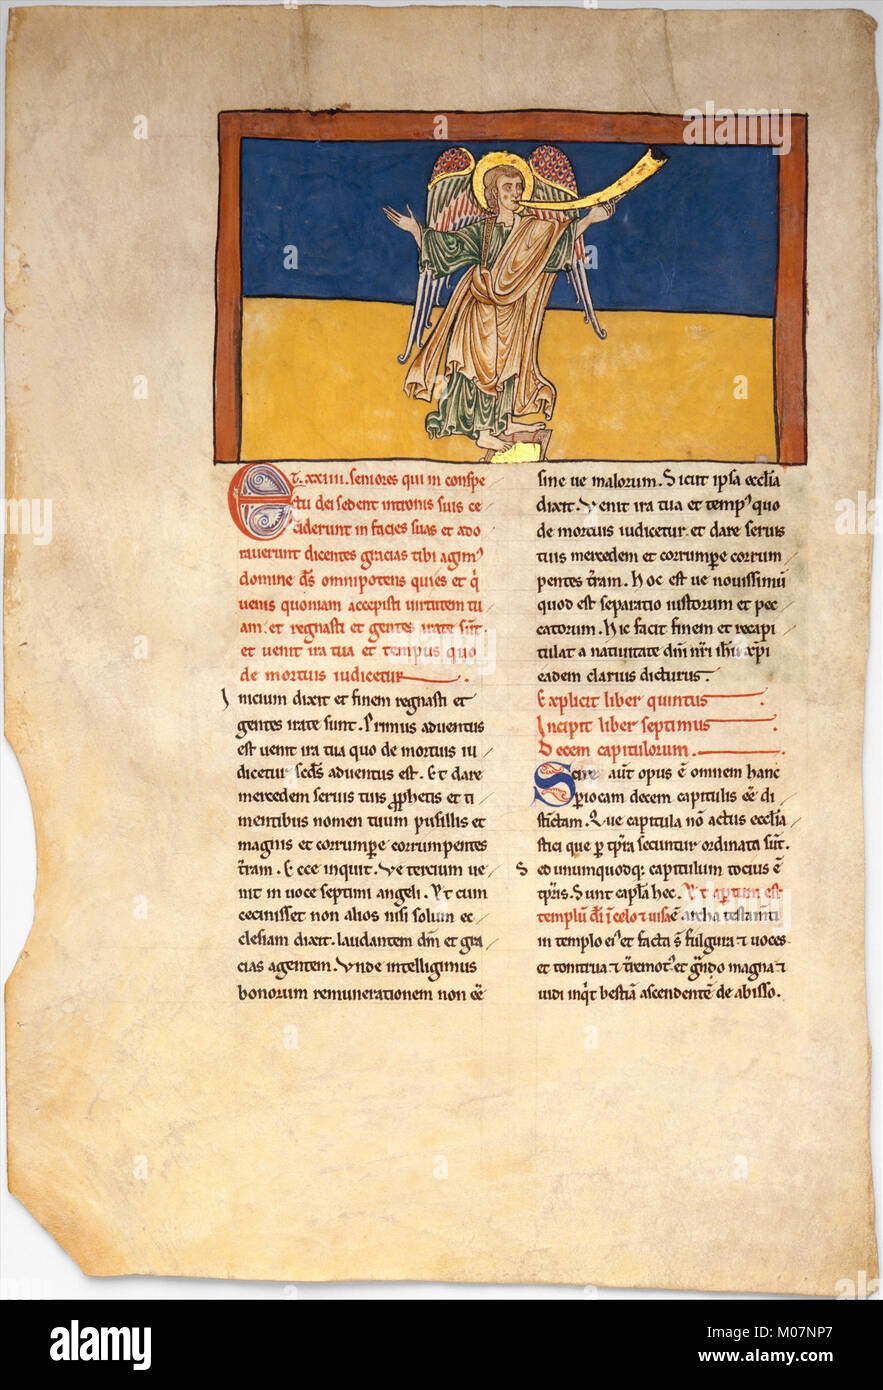 Et .xxiiii. seniores qui in conspe
ctu dei sedent in tronis suis ce
ciderunt in facies suas et ado
raverunt dicentes gracias tibi agim᾽
domine d̄s omnipotens qui es et q̇
venis quoniam accepisti virtutem tu
am. et regnasti et gentes irate sūt.
et venit ira tua et tempus quo
de mortuis iudicetur.
Inicium dixit et finem regnasti et
gentes irate sunt. Primus adventus
est venit ira tua quo de mortuis iu
dicetur sc̄ds adventus est. Et dare
mercedem servis tuis ꝓphetis et ti
mentibus nomen tuum pusillis et
magnis et corrumpe᷑ corrumpentes
t᷑ram. Ecce inquit. Ve tercium ve
nit in voce septimi angeli. Et cum
cecinisset non alios nisi solum ec
clesiam dixit. laudantem dn̄m et gra
cias agentem. Unde intelligimus
bonorum remunerationem non eē
sine ve malorum. Sicut ipsa ecclīa
dixit. Venit ira tua et temp᾽ quo
de mortuis iudicetur. et dare servis
tuis mercedem et corrumpe᷑ corrum
pentes t᷑ram. Hoc est ve novissimū
quod est separatio iustorum et pec
catorum. Hic facit finem et recapi
tulat a nativitate dn̄i nr̄i ihū xp̄i
eadem clarius dicturus.
Explicit liber quintus
Incipit liber septimus
Decem capitulorum.
Scire aūt opus ē omnem hanc
periocam decem capitulis eē di
stīctam. Que capitula nō actus ecclīa
stici que ꝑ tp̄ra secuntur ordinata sūt.
Sed unumquodq; capitulum tocius ē
tp̄ris. Sunt capl̄a hec. Et aꝑtum est
templū dī ī celo ⁊ visa ē archa testam̄ti
in templo ei᾽ et facta s̄ fulgura ⁊ voces
et tonitrua ⁊ t᷑remot᾽ et g᷑ndo magna ⁊
vidi inq̇t bestiā ascendentē de abisso.
alamy
Image ID: M07NP7
www.alamy.com